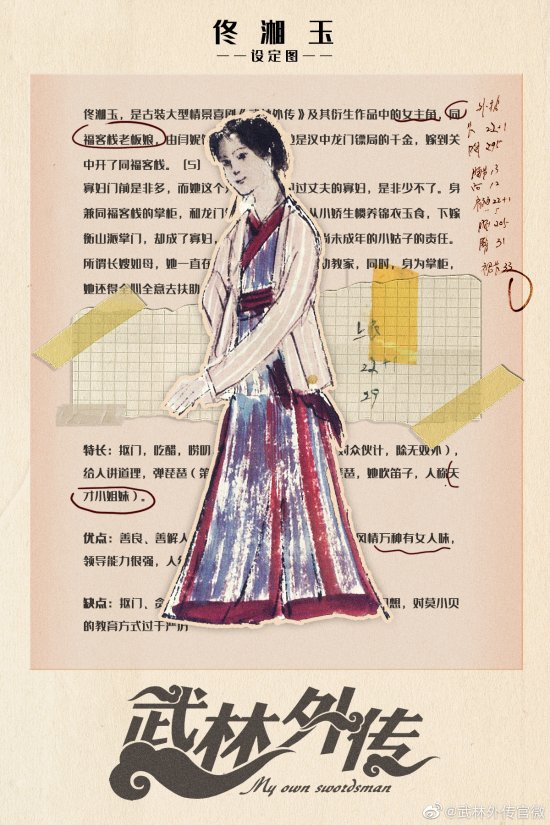 佟湘玉
——设定图——
佟湘玉，是古装大型情景喜剧《武林外传》及其衍生作品中的女主角，同
福客栈老板娘，由闫妮 是汉中龙门镖局的千金，嫁到关
中开了同福客栈。 [5]
寡妇门前是非多，而她这个 过丈夫的寡妇，是非少不了。身
兼同福客栈的掌柜，和龙门 从小娇生惯养锦衣玉食，下嫁
衡山派掌门，却成了寡妇， 尚未成年的小姑子的责任。
所谓长嫂如母，她一直在 教家，同时，身为掌柜，
她还得全心全意去扶助
特长：抠门，吃醋，唠叨 对众伙计，除无双外），
给人讲道理，弹琵琶（第 琵，她吹笛子，人称天
才小姐妹）。
优点：善良、善解人 风情万种有女人味，
领导能力很强，人
缺点：抠门、贪 想，对莫小贝
的教育方式过于严厉
22+1
29.5
13
12
22+1
5
20.5
31
33
22+1
29
武林外传
My own swordsman
@武林外传官微